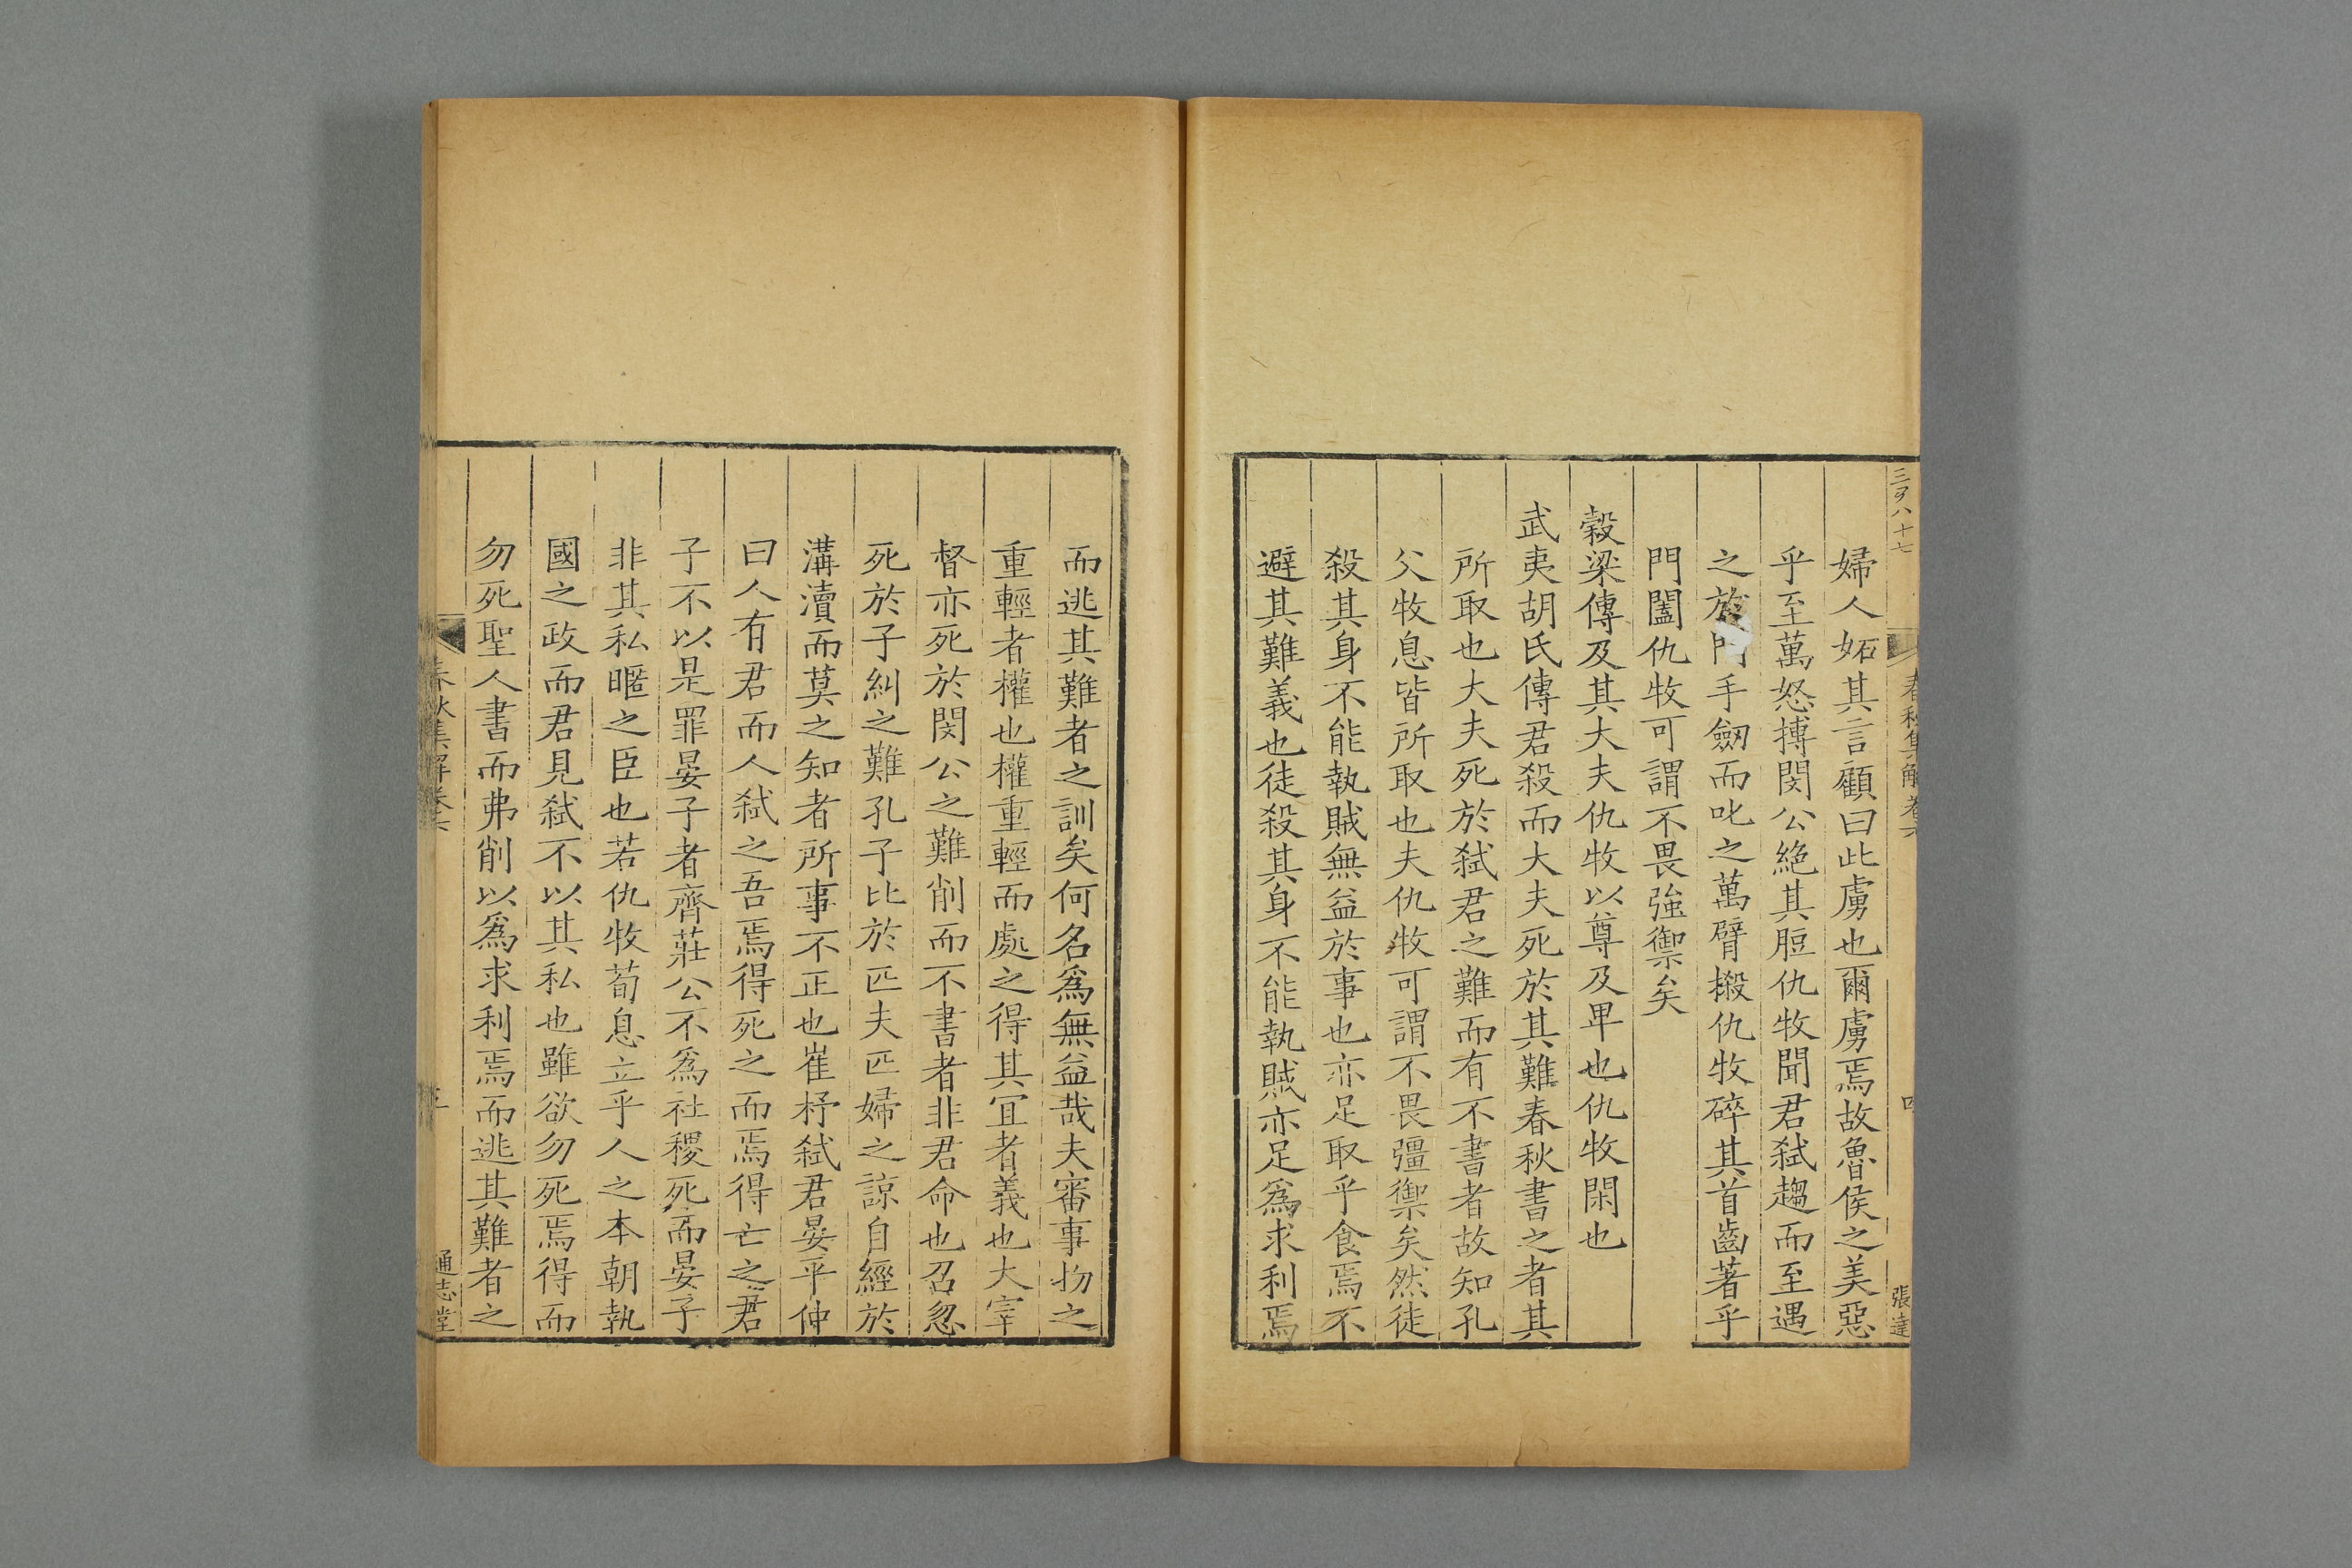 婦人妬其言顧曰此虜也爾虜焉故魯侯之美惡
乎至萬怒搏閔公絶其脰仇牧聞君弑趨而至遇
之於門手劒而叱之萬臂摋仇牧碎其首齒著乎
門闔仇牧可謂不畏強禦矣
穀梁傳及其大夫仇牧以尊及卑也仇牧閑也
武夷胡氏傳君殺而大夫死於其難春秋書之者其
所取也大夫死於弑君之難而有不書者故知孔
父牧息皆所取也夫仇牧可謂不畏彊禦矣然徒
殺其身不能執賊無益於事也亦足取乎食焉不
避其難義也徒殺其身不能執賊亦足爲求利焉
張達
而逃其難者之訓矣何名爲無益哉夫審事物之
重輕者權也權重輕而處之得其宜者義也大宰
督亦死於閔公之難削而不書者非君命也召忽
死於子糾之難孔子比於匹夫匹婦之諒自經於
溝瀆而莫之知者所事不正也崔杼弑君晏平仲
曰人有君而人弑之吾焉得死之而焉得亡之君
子不以是罪晏子者齊莊公不爲社稷死而晏子
非其私暱之臣也若仇牧荀息立乎人之本朝執
國之政而君見弑不以其私也雖欲勿死焉得而
勿死聖人書而弗削以爲求利焉而逃其難者之
春秋集解卷六
通志堂